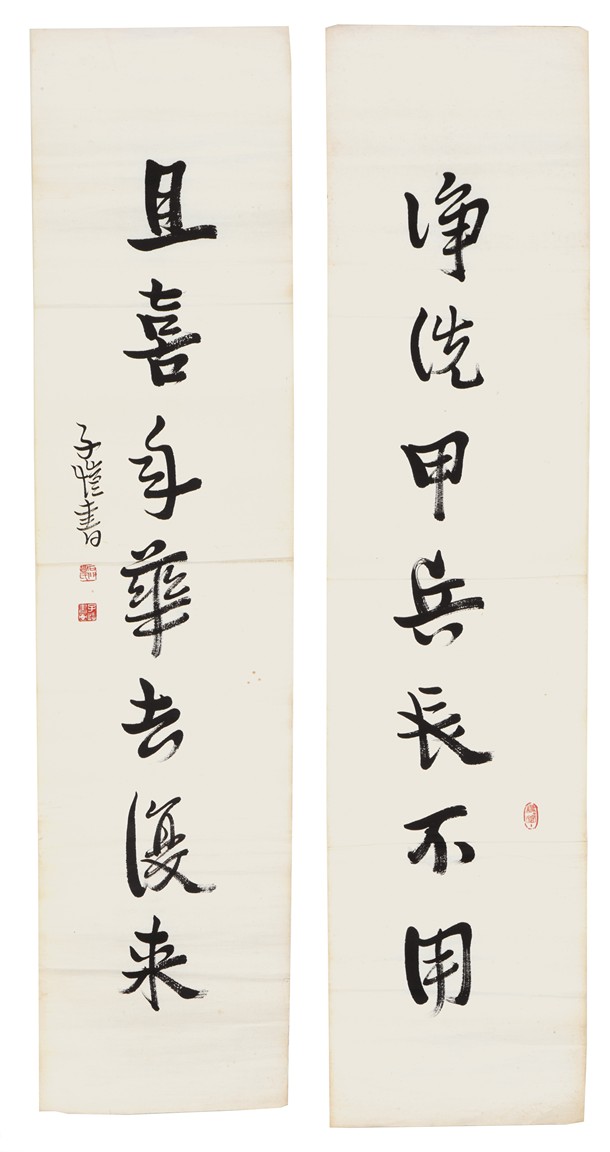 淨洗甲兵長不用
且喜年華去復来
子愷書